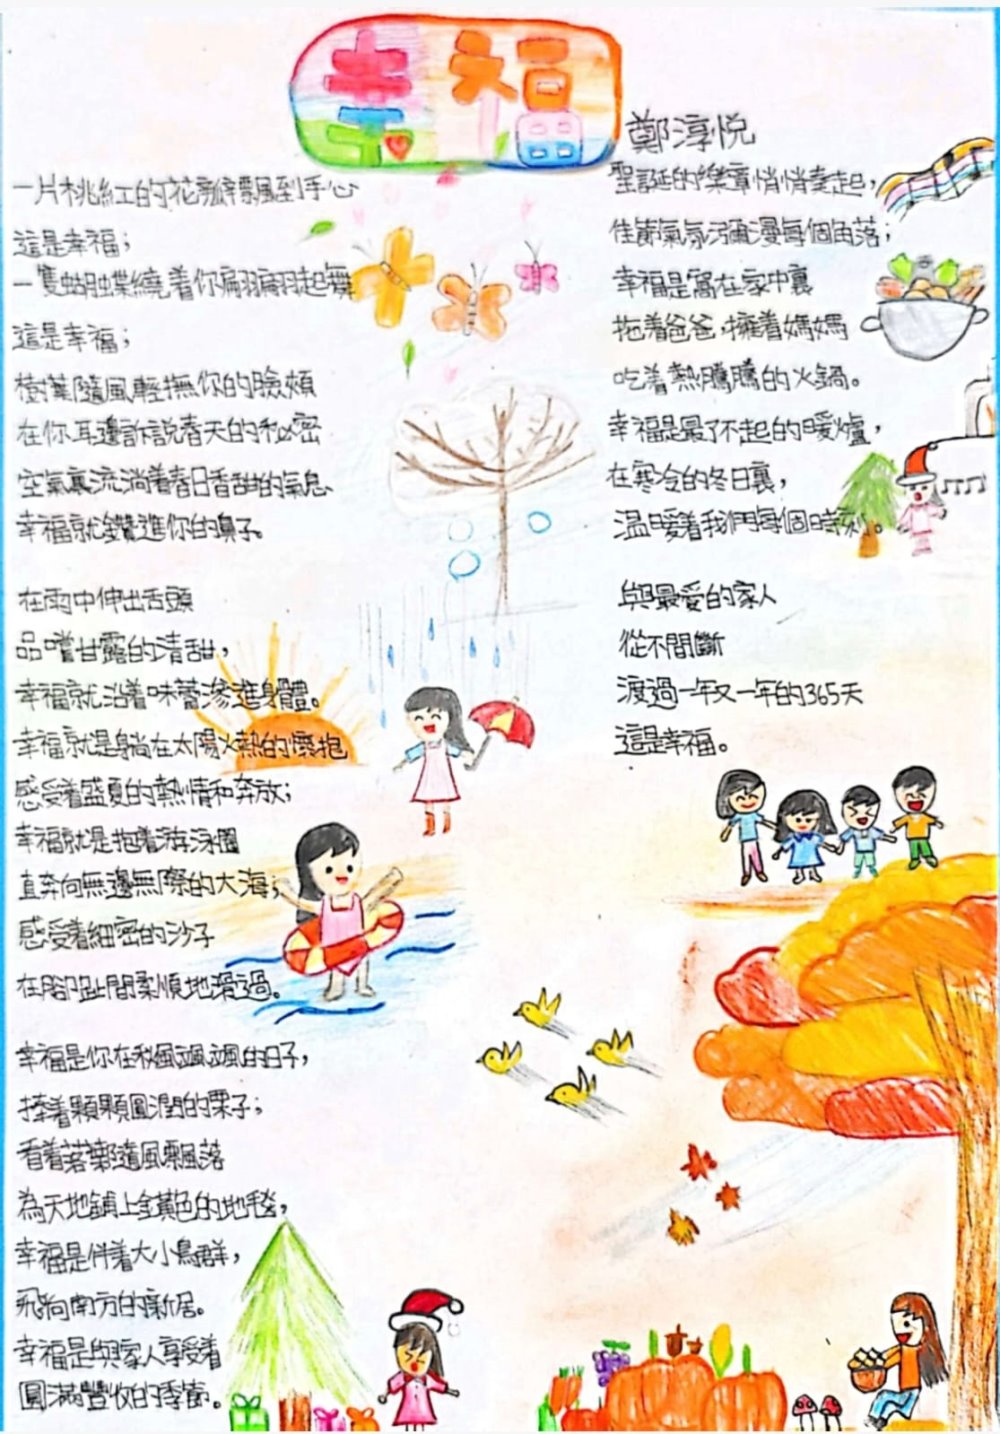 幸福
鄭淳悦
一片桃紅的花瓣飄到手心
這是幸福；
一隻蝴蝶繞着你翩翩起舞
這是幸福；
樹葉隨風輕撫你的臉頰
在你耳邊訴説春天的秘密
空氣裏流淌着春日香甜的氣息
幸福就鑽進你的鼻子。
在雨中伸出舌頭
品嚐甘露的清甜，
幸福就沿着味蕾滲進身體。
幸福就是躺在太陽火熱的懷抱
感受着盛夏的熱情和奔放；
幸福就是抱着游泳圈
直奔向無邊無際的大海；
感受着細密的沙子
在腳趾間柔順地滑過。
幸福是你在秋風颯颯的日子，
捧着顆顆圓潤的栗子；
看着落葉隨風飄落
為大地鋪上金黃色的地毯，
幸福是伴着大小鳥群，
飛向南方的新居。
幸福是與家人享受着
圓滿豐收的季節。
聖誕的樂章悄悄奏起，
佳節氣氛瀰漫每個角落；
幸福是窩在家中裏
抱着爸爸，擁着媽媽
吃着熱騰騰的火鍋。
幸福是最了不起的暖爐，
在寒冷的冬日裏，
溫暖着我們每個時刻。
與最愛的家人
從不間斷
渡過一年又一年的365天
這是幸福。